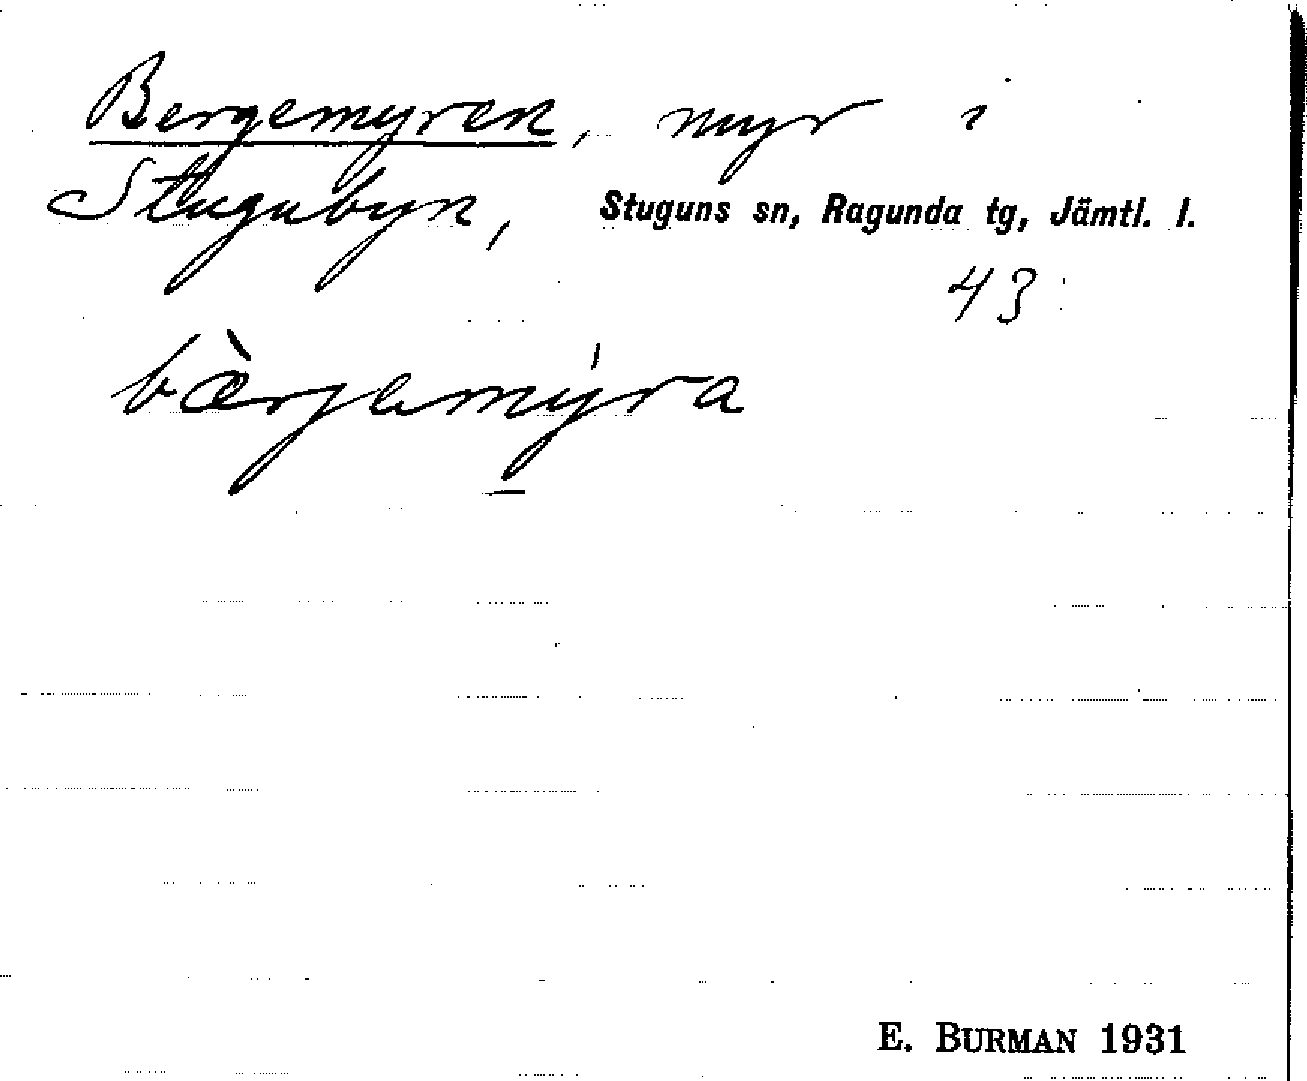 Bergemyren, myr i
Stugubyn, Stuguns sn, Ragunda tg, Jämtl. l.
43
bærgamýra
E. BURMAN 1931